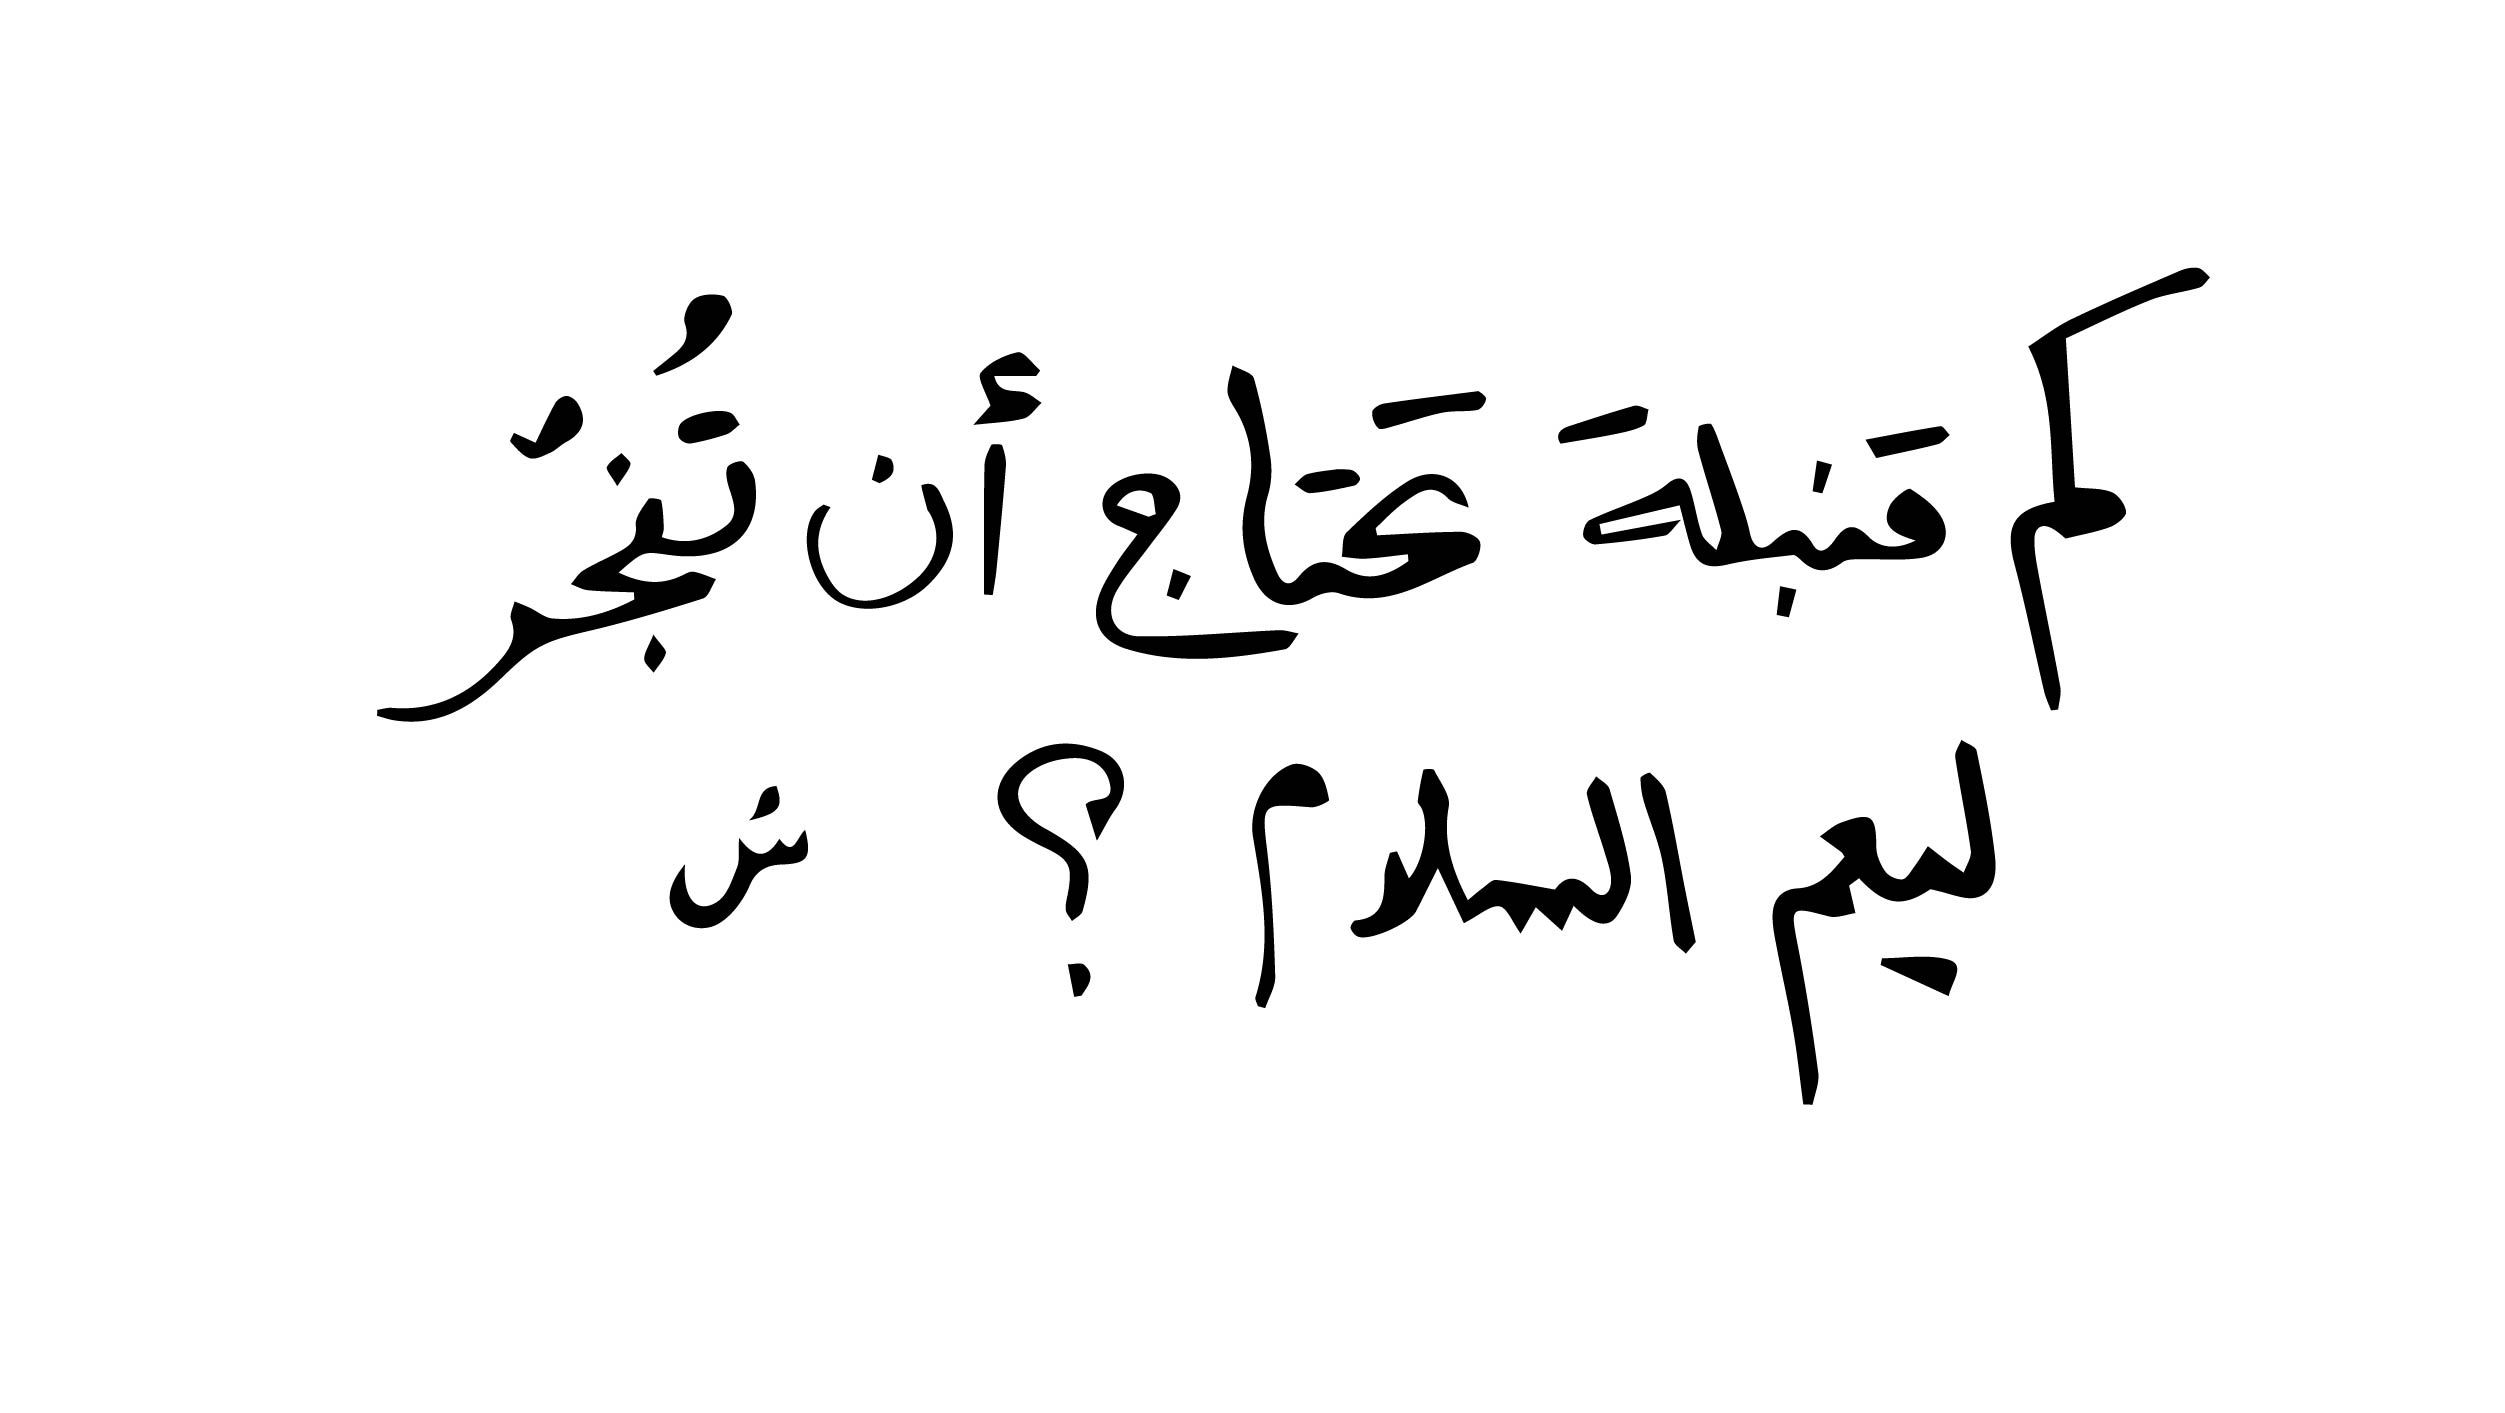 كم قنبلة تحتاج أن تُفجر
ليعم السلام ؟ ش